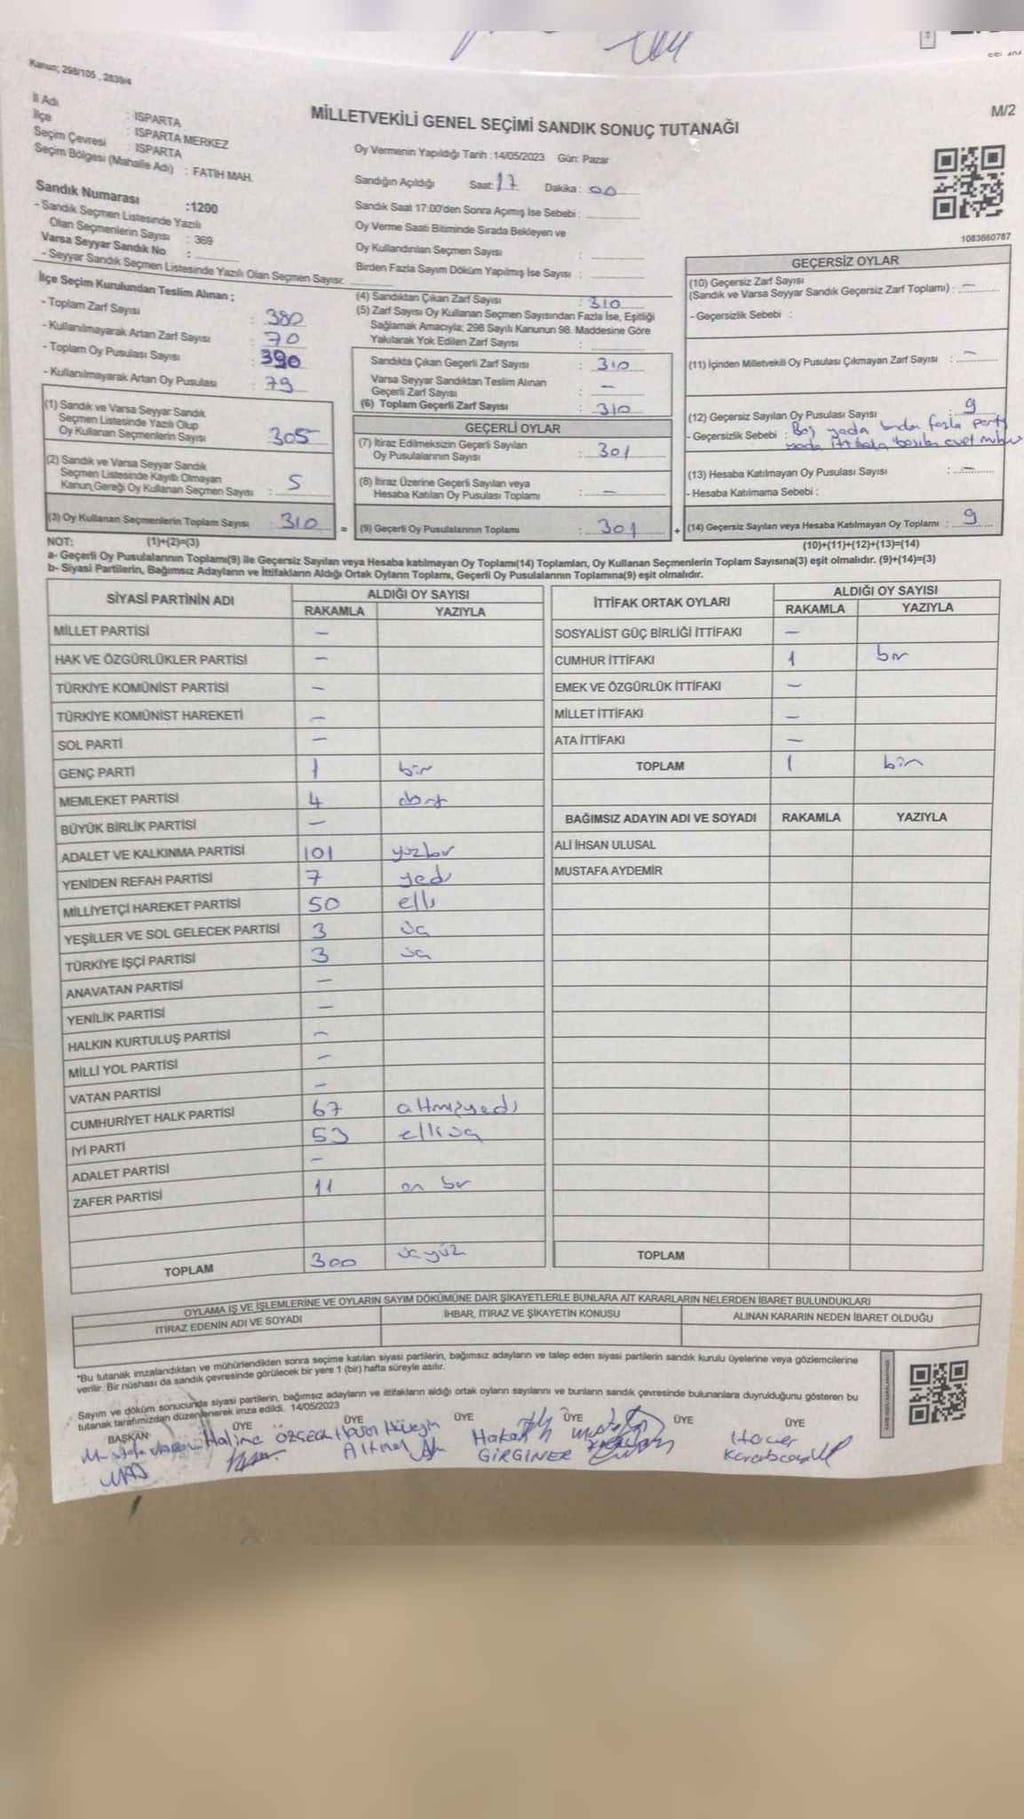 Kanun; 298/105 , 2839/4
M/2
MİLLETVEKİLİ GENEL SEÇİMİ SANDIK SONUÇ TUTANAĞI
İl Adı : ISPARTA
İlçe : ISPARTA MERKEZ
Seçim Çevresi : ISPARTA
Seçim Bölgesi (Mahalle Adı) : FATİH MAH.
Sandık Numarası :1200
- Sandık Seçmen Listesinde Yazılı
Olan Seçmenlerin Sayısı : 369
Varsa Seyyar Sandık No :
- Seyyar Sandık Seçmen Listesinde Yazılı Olan Seçmen Sayısı:
Oy Vermenin Yapıldığı Tarih :14/05/2023 Gün: Pazar
Sandığın Açıldığı Saat: 17 Dakika : 00
Sandık Saat 17:00'den Sonra Açımış İse Sebebi :
Oy Verme Saati Bitiminde Sırada Bekleyen ve
Oy Kullandırılan Seçmen Sayısı :
Birden Fazla Sayım Döküm Yapılmış İse Sayısı :
1083660787
İlçe Seçim Kurulundan Teslim Alınan ;
- Toplam Zarf Sayısı : 380
- Kullanılmayarak Artan Zarf Sayısı : 70
- Toplam Oy Pusulası Sayısı : 390
- Kullanılmayarak Artan Oy Pusulası : 79
(1) Sandık ve Varsa Seyyar Sandık
Seçmen Listesinde Yazılı Olup
Oy Kullanan Seçmenlerin Sayısı :305
(2) Sandık ve Varsa Seyyar Sandık
Seçmen Listesinde Kayıtlı Olmayan
Kanun Gereği Oy Kullanan Seçmen Sayısı : 5
(3) Oy Kullanan Seçmenlerin Toplam Sayısı : 310 =
(4) Sandıktan Çıkan Zarf Sayısı : 310
(5) Zarf Sayısı Oy Kullanan Seçmen Sayısından Fazla İse, Eşitliği
Sağlamak Amacıyla; 298 Sayılı Kanunun 98. Maddesine Göre
Yakılarak Yok Edilen Zarf Sayısı :
Sandıkta Çıkan Geçerli Zarf Sayısı : 310
Varsa Seyyar Sandıktan Teslim Alınan
Geçerli Zarf Sayısı : –
(6) Toplam Geçerli Zarf Sayısı : 310
GEÇERLİ OYLAR
(7) İtiraz Edilmeksizin Geçerli Sayılan
Oy Pusulalarının Sayısı : 301
(8) İtiraz Üzerine Geçerli Sayılan veya
Hesaba Katılan Oy Pusulası Toplamı : –
(9) Geçerli Oy Pusulalarının Toplamı : 301 +
GEÇERSİZ OYLAR
(10) Geçersiz Zarf Sayısı
(Sandık ve Varsa Seyyar Sandık Geçersiz Zarf Toplamı) : –
- Geçersizlik Sebebi :
(11) İçinden Milletvekili Oy Pusulası Çıkmayan Zarf Sayısı : –
(12) Geçersiz Sayılan Oy Pusulası Sayısı : 9
- Geçersizlik Sebebi : Boş yada birden fazla parti
yada ittifaka basılan evet mührü
(13) Hesaba Katılmayan Oy Pusulası Sayısı : –
- Hesaba Katılmama Sebebi :
(14) Geçersiz Sayılan veya Hesaba Katılmayan Oy Toplamı : 9
NOT: (1)+(2)=(3) (10)+(11)+(12)+(13)=(14)
a- Geçerli Oy Pusulalarının Toplamı(9) ile Geçersiz Sayılan veya Hesaba katılmayan Oy Toplamı(14) Toplamları, Oy Kullanan Seçmenlerin Toplam Sayısına(3) eşit olmalıdır. (9)+(14)=(3)
b- Siyasi Partilerin, Bağımsız Adayların ve İttifakların Aldığı Ortak Oyların Toplamı, Geçerli Oy Pusulalarının Toplamına(9) eşit olmalıdır.
SİYASİ PARTİNİN ADI ALDIĞI OY SAYISI
RAKAMLA YAZIYLA
MİLLET PARTİSİ –
HAK VE ÖZGÜRLÜKLER PARTİSİ –
TÜRKİYE KOMÜNİST PARTİSİ –
TÜRKİYE KOMÜNİST HAREKETİ –
SOL PARTİ –
GENÇ PARTİ 1 bir
MEMLEKET PARTİSİ 4 dört
BÜYÜK BİRLİK PARTİSİ –
ADALET VE KALKINMA PARTİSİ 101 yüzbir
YENİDEN REFAH PARTİSİ 7 yedi
MİLLİYETÇİ HAREKET PARTİSİ 50 elli
YEŞİLLER VE SOL GELECEK PARTİSİ 3 üç
TÜRKİYE İŞÇİ PARTİSİ 3 üç
ANAVATAN PARTİSİ –
YENİLİK PARTİSİ –
HALKIN KURTULUŞ PARTİSİ –
MİLLİ YOL PARTİSİ –
VATAN PARTİSİ –
CUMHURİYET HALK PARTİSİ 67 altmışyedi
İYİ PARTİ 53 elliüç
ADALET PARTİSİ –
ZAFER PARTİSİ 11 on bir
TOPLAM 300 üçyüz
İTTİFAK ORTAK OYLARI ALDIĞI OY SAYISI
RAKAMLA YAZIYLA
SOSYALİST GÜÇ BİRLİĞİ İTTİFAKI –
CUMHUR İTTİFAKI 1 bir
EMEK VE ÖZGÜRLÜK İTTİFAKI –
MİLLET İTTİFAKI –
ATA İTTİFAKI –
TOPLAM 1 bir
BAĞIMSIZ ADAYIN ADI VE SOYADI RAKAMLA YAZIYLA
ALİ İHSAN ULUSAL
MUSTAFA AYDEMİR
TOPLAM
OYLAMA İŞ VE İŞLEMLERİNE VE OYLARIN SAYIM DÖKÜMÜNE DAİR ŞİKAYETLERLE BUNLARA AİT KARARLARIN NELERDEN İBARET BULUNDUKLARI
İTİRAZ EDENİN ADI VE SOYADI İHBAR, İTİRAZ VE ŞİKAYETİN KONUSU ALINAN KARARIN NEDEN İBARET OLDUĞU
*Bu tutanak imzalandıktan ve mühürlendikten sonra seçime katılan siyasi partilerin, bağımsız adayların ve talep eden siyasi partilerin sandık kurulu üyelerine veya gözlemcilerine
verilir. Bir nüshası da sandık çevresinde görülecek bir yere 1 (bir) hafta süreyle asılır.
Sayım ve döküm sonucunda siyasi partilerin, bağımsız adayların ve ittifakların aldığı ortak oyların sayılarını ve bunların sandık çevresinde bulunanlara duyrulduğunu gösteren bu
tutanak tarafımızdan düzenlenerek imza edildi. 14/05/2023
BAŞKAN ÜYE ÜYE ÜYE ÜYE ÜYE ÜYE
Halime Hüseyin Hakan Mustafa Hacer
GİRGİNER